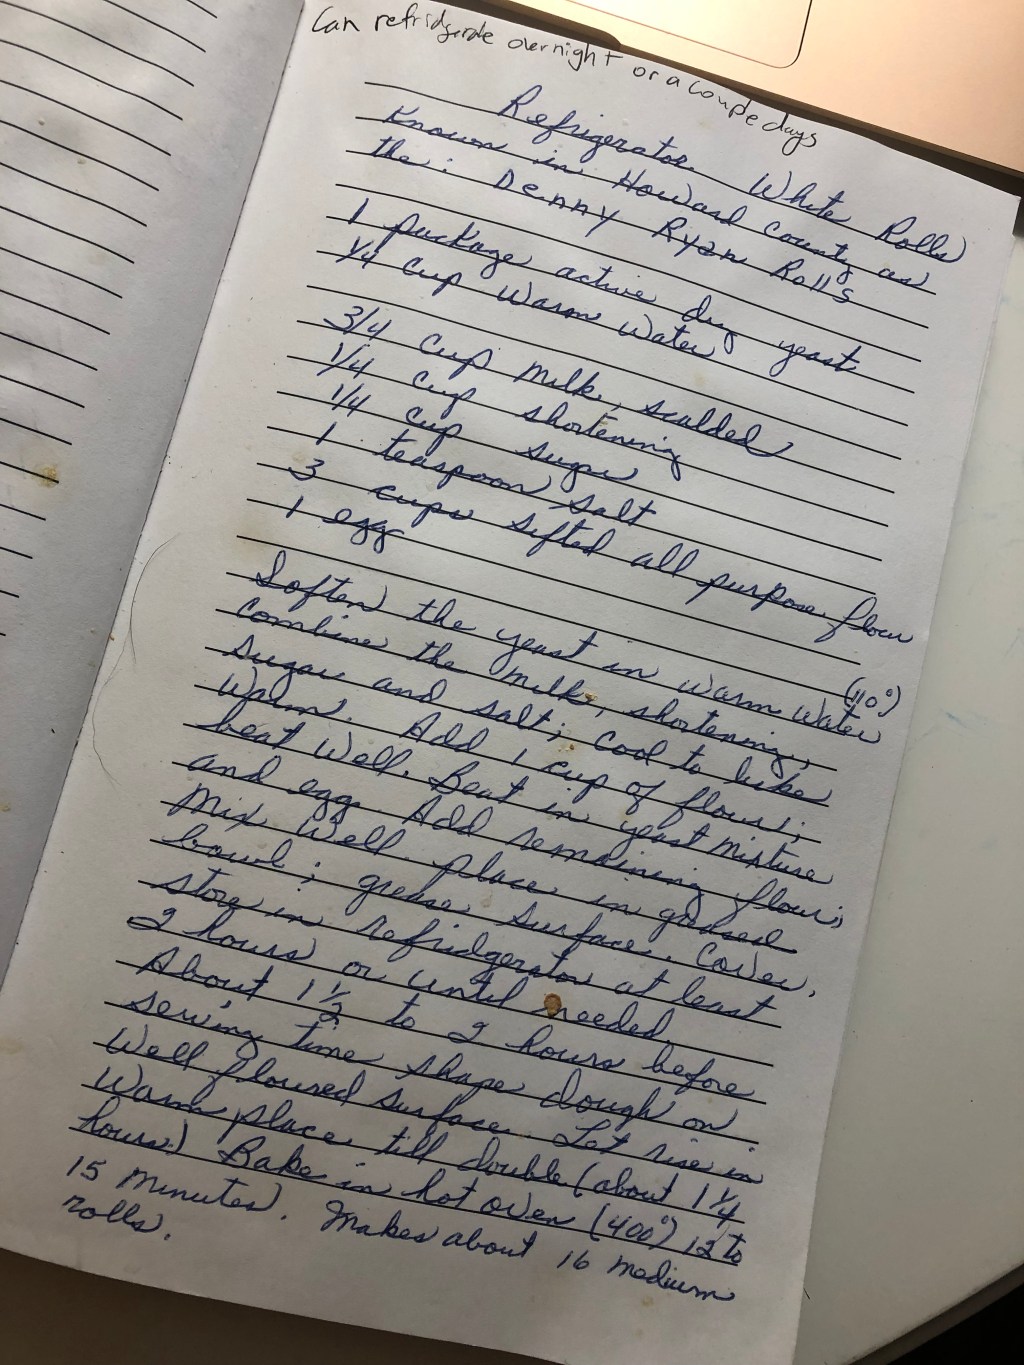 Can refridgerate overnight or a coupe days
Refrigerator White Rolls
Known in Howard County as
the: Denny Ryan Rolls
1 package active dry yeast
1/4 cup warm water
3/4 cup milk, scalded
1/4 cup shortening
1/4 cup sugar
1 teaspoon salt
3 cups sifted all purpose flour
1 egg
Soften the yeast in warm water (110°)
Combine the milk, shortening,
Sugar and salt; cool to luke
Warm. Add 1 cup of flour;
beat well. Beat in yeast mixture
and egg. Add remaining flour;
Mix Well. place in greased
bowl; grease surface. Cover,
store in refridgerator at least
2 hours or until needed.
About 1 1/2 to 2 hours before
serving time shape dough on
Well floured surface. Let rise in
Warm place till double (about 1 1/4
hours) Bake in hot oven (400°) 12 to
15 minutes. Makes about 16 medium
rolls.